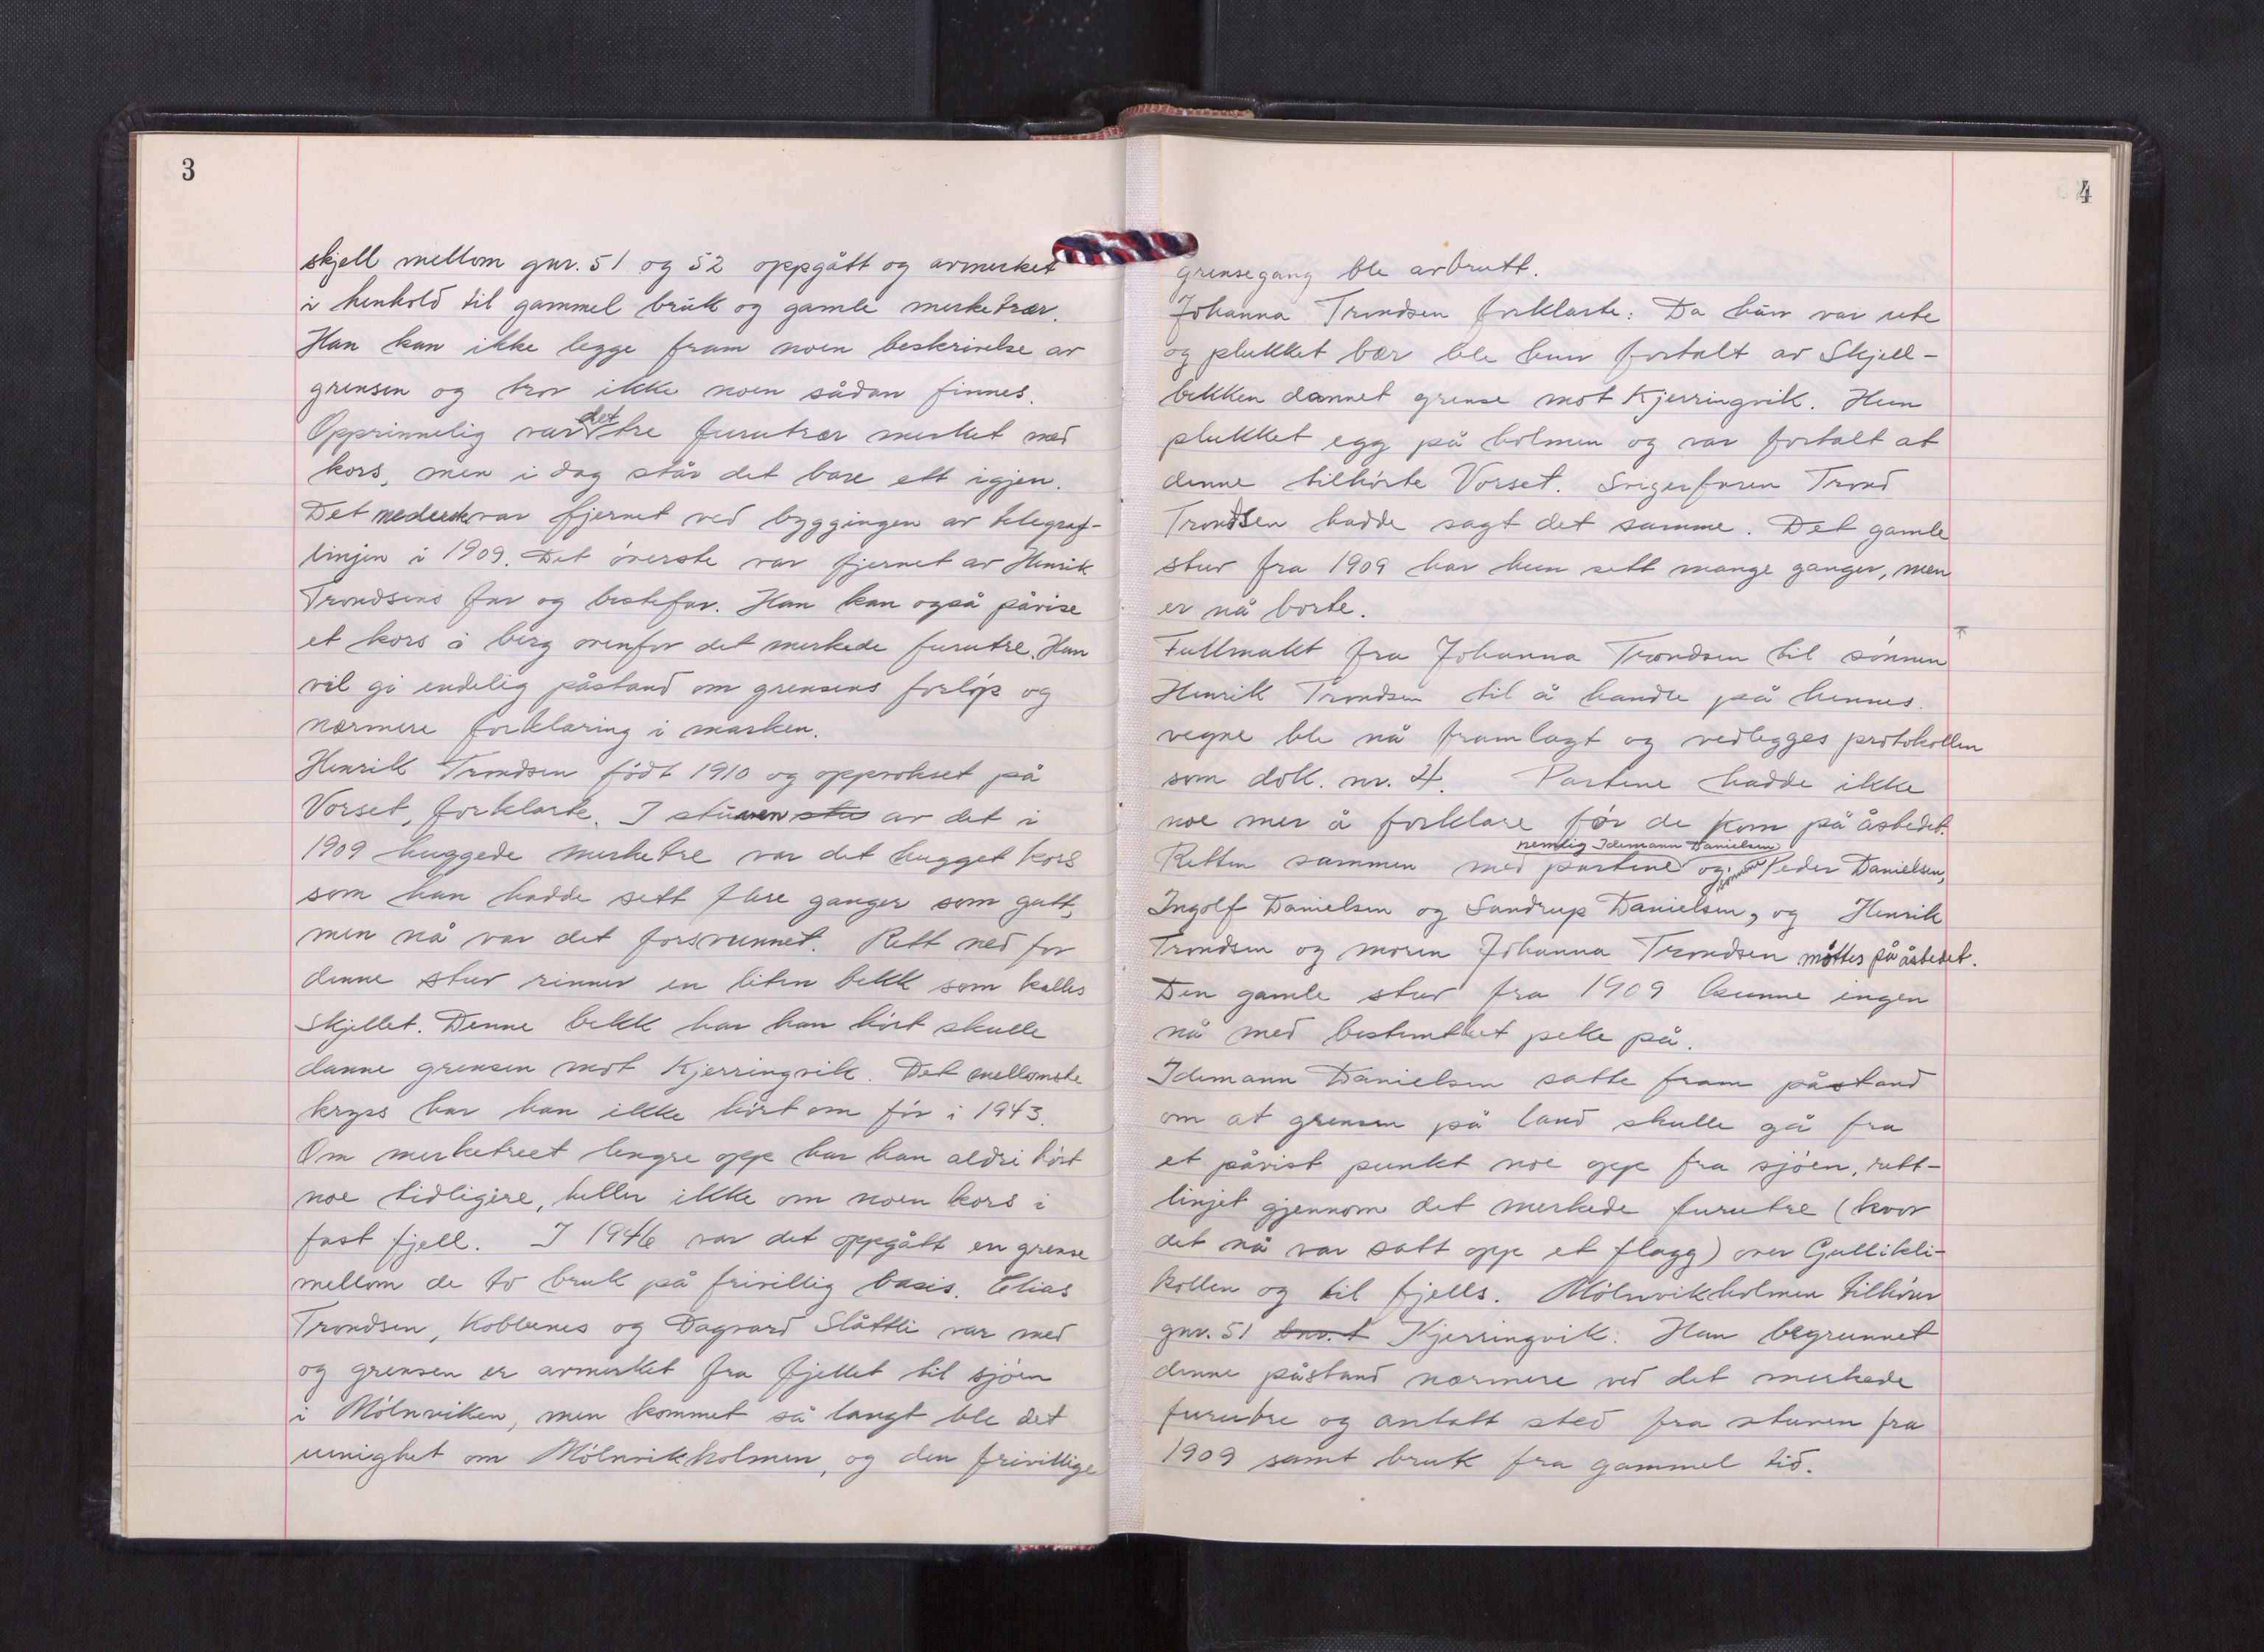 3
skjell mellom gnr. 51 og 52 oppgått og avmerket
i henhold til gammel bruk og gamle merketrær.
Han kan ikke legge fram noen beskrivelse av
grensen og tror ikke noen sådan finnes.
Opprinnelig var det tre furutrær merket med
kors, men i dag står det bare ett igjen.
Det nederste var fjernet ved byggingen av telegraf-
linjen i 1909. Det øverste var fjernet av Henrik
Trondsens far og bestefar. Han kan også påvise
et kors i berg ovenfor det merkede furutre. Han
vil gi endelig påstand om grensens forløp og
nærmere forklaring i marken.
Henrik Trondsen født 1910 og oppvokset på
Vorset, forklarte. I stuven stu av det i
1909 huggede merketre var det hugget kors
som han hadde sett flere ganger som gutt,
men nå var det forsvunnet. Rett ned for
denne stuv rinner en liten bekk som kalles
Skjellet. Denne bekk har han hørt skulle
danne grensen mot Kjerringvik. Det mellomste
kryss har han ikke hørt om før i 1943.
Om merketreet lengre opp har han aldri hørt
noe tidligere, heller ikke om noen kors i
fast fjell. I 1946 var det oppgått en grense
mellom de to bruk på frivillig basis. Elias
Trondsen, Kobbenes og Dagvard Slåttli var med
og grensen er avmerket fra fjellet til sjøen
i Mølnviken, men kommet så langt ble det
uenighet om Mølnvikholmen, og den frivillige
4
grensegang ble avbrutt.
Johanna Trondsen forklarte: Da hun var ute
og plukket bær ble hun fortalt av Skjell-
bekken dannet grense mot Kjerringvik. Hun
plukket egg på holmen og var fortalt at
denne tilhørte Vorset. Svigerfaren Trond
Trondsen hadde sagt det samme. Det gamle
stuv fra 1909 har hun sett mange ganger, men
er nå borte.
Fullmakt fra Johanna Trondsen til sønnen
Henrik Trondsen til å handle på hennes
vegne ble nå framlagt og vedlegges protokollen
som dok. nr. 4. Partene hadde ikke
noe mer å forklare før de kom på åstedet.
nemlig Idemann Danielsen
Retten sammen med partene og sønnene Peder Danielsen,
Ingolf Danielsen og Sandrup Danielsen, og Henrik
Trondsen og moren Johanna Trondsen møttes på åstedet.
Den gamle stuv fra 1909 kunne ingen
nå med bestemthet peke på.
Idemann Danielsen satte fram påstand
om at grensen på land skulle gå fra
et påvist punkt noe opp fra sjøen, rett-
linjet gjennom det merkede furutre (hvor
det nå var satt opp et flagg) over Gullikli-
kollen og til fjells. Mølnvikholmen tilhører
gnr. 51 bnr. 1 Kjerringvik. Han begrunnet
denne påstand nærmere ved det merkede
furutre og antatt sted fra stuven fra
1909 samt bruk fra gammel tid.